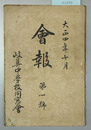 大正四年十月
會報
第一號
岐阜中學校同窓會